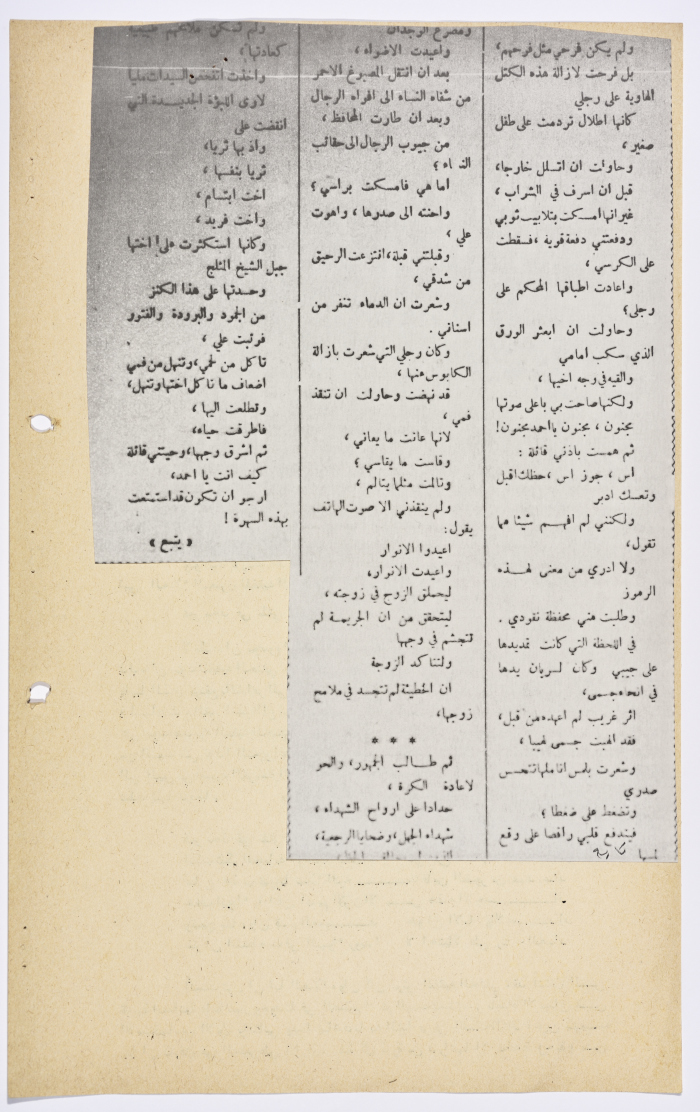 ولم يكن فرحي مثل فرحهم،
بل فرحت لازالة هذه الكتل
الهاوية على رجلي
كأنها اطلال تردمت على طفل
صغير،
وحاولت ان اتسلل خارجا،
قبل ان اسرف في الشراب،
غير انها امسكت بتلابيب ثوبي
ودفعتني دفعة قوية، فسقطت
على الكرسي،
واعادت اطباقها المحكم على
رجلي؟
وحاولت ان ابعثر الورق
الذي سكب امامي
والقيه في وجه اخيها،
ولكنها صاحت بي باعلى صوتها
مجنون، مجنون يا احمد مجنون!
ثم همست باذني قائلة:
اس، جوز اس، حظك اقبل
وتعسك ادبر
ولكنني لم افهم شيئا مما
تقول،
ولا ادري من معنى لهذه
الرموز
وطلبت مني محفظة نقودي.
في اللحظة التي كانت تمد يدها
على جيبي وكان لسريان يدها
في انحاء جسمي،
اثر غريب لم اعهده من قبل،
فقد الهبت جسمي لهيبا،
وشعرت بلمس اناملها تتحسس
صدري
وتضغط على ضغطا؟
فيندفع قلبي راقصا على وقع
لمسها
ومصرع الوجدان
واعيدت الاضواء،
بعد ان انتقل الصبوغ الاحمر
من شفاه النساء الى افواه الرجال
وبعد ان طارت المحافظ،
من جيوب الرجال الى حقائب
النساء؟
اما هي فامسكت براسي؟
واحنته الى صدرها، واهوت
علي،
وقبلتني قبلة، انتزعت الرحيق
من شدقي،
وشعرت ان الدماء تنفر من
اسناني.
وكان رجلي التي شعرت بازالة
الكابوس عنها،
قد نهضت وحاولت ان تنقذ
فمي،
لانها عانت ما يعاني،
وقاست ما يقاسي؟
وتالمت مثلما يتالم،
ولم ينقذني الا صوت الهاتف
يقول:
اعيدوا الانوار
واعيدت الانوار،
ليحملق الزوج في زوجته،
ليتحقق من ان الجريمة لم
تتجشم في وجهها
ولتتاكد الزوجة
ان الخطيئة لم تتجسد في ملامح
زوجها،
* * *
ثم طالب الجمهور، والحو
لاعادة الكرة،
حدادا على ارواح الشهداء،
شهداء الجهل، وضحايا الرجعية،
ولم تمكن ملامحهم طبيعية
كعادتها،
واخذت اتفحص السيدات مليا
لارى اللبؤة الجديدة التي
انقضت على
واذ بها ثريا،
ثريا بنفسها،
اخت ابتسام،
واخت فريد،
وكأنها استكثرت على اختها
جبل الشيخ المثلج
وحسدتها على هذا الكنز
من الجمود والبرودة والفتور
فوثبت علي،
تاكل من لحمي، وتنهل من فمي
اضعاف ما تاكل اختها وتنهل،
وتطلعت اليها،
فاطرقت حياء،
ثم اشرق وجهها، وحيتني قائلة
كيف انت يا احمد،
ارجو ان تكون قد استمتعت
بهذه السهرة!
«يتبع»